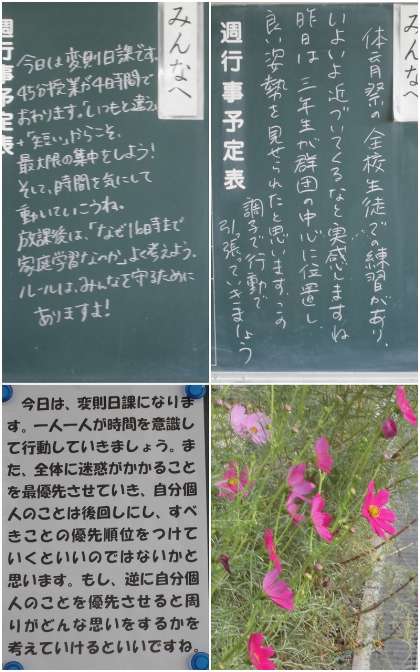 みんなへ
週行事予定表
今日は変則日課です。
45分授業が4時間で
おわります。「いつもと違う」
+「短い」からこそ、
最大限の集中をしよう!
そして、時間を気にして
動いていこうね。
放課後は、「なぜ16時まで
家庭学習なのか」よく考えよう。
ルールは、みんなを守るために
ありますよ!
みんなへ
週行事予定表
体育祭の全校生徒での練習があり、
いよいよ近づいてくるなと実感しますね
昨日は三年生が群団の中心に位置し、
良い姿勢を見せられたと思います。この
調子で行動で
引っ張っていきましょう
今日は、変則日課になりま
す。一人一人が時間を意識し
て行動していきましょう。ま
た、全体に迷惑がかかること
を最優先させていき、自分個
人のことは後回しにし、すべ
きことの優先順位をつけて
いくといいのではないかと
思います。もし、逆に自分個
人のことを優先させると周
りがどんな思いをするかを
考えていけるといいですね。